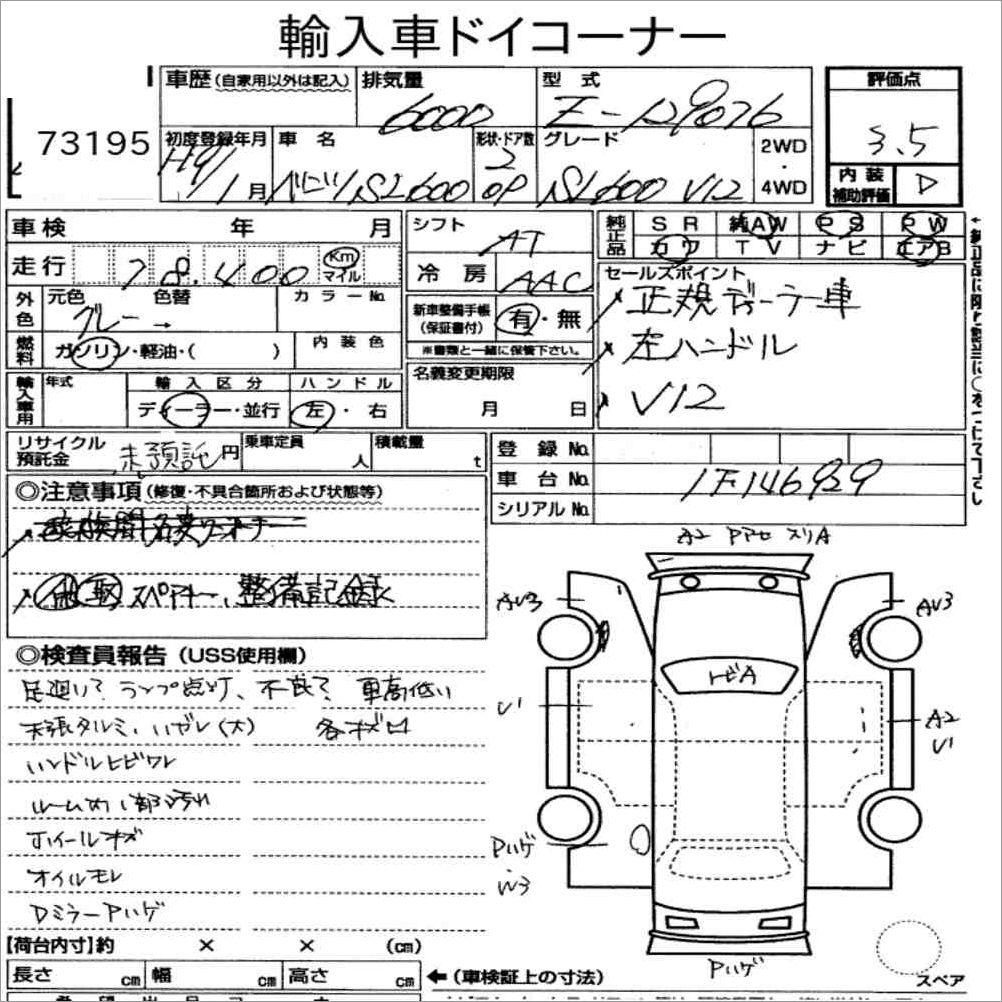 輸入車ドイコーナー
73195
車歴(自家用以外は記入)
排気量
6000
型式
E-129076
評価点
3.5
初度登録年月
H9/1月
車名
ベンツ/SL600
形状・ドア数
2
OP
グレード
SL600 V12
2WD
・
4WD
内装
補助評価
D
車検 年 月
シフト
AT
純正品
SR 純AW PS PW
カワ TV ナビ エアB
走行
78,400
Km
マイル
冷房
AAC
セールスポイント
正規ディーラー車
左ハンドル
V12
外色
元色 色替
グレー →
カラーNo.
新車整備手帳
(保証書付)
有・無
※書類と一緒に保管下さい。
燃料
ガソリン・軽油・( )
内装色
輸入車用
年式
輸入区分
ディーラー・並行
ハンドル
左・右
名義変更期限
月 日
リサイクル
預託金
未預託 円
乗車定員
人
積載量
t
登録No.
車台No.
1F146929
シリアルNo.
◎注意事項(修復・不具合箇所および状態等)
スペアキー、整備記録
◎検査員報告(USS使用欄)
足廻り? ランプ点灯、不良? 車高低い
天張タルミ、ハガレ(大) 各ボロ
ハンドルヒビワレ
ルーム内 汚れ
ホイールキズ
オイルモレ
DミラーPハゲ
A2
AU3
AU3
トビA
U1
A2
U1
Pハゲ
W3
Pハゲ
スペア
【荷台内寸】約 × × (cm)
長さ cm 幅 cm 高さ cm
←(車検証上の寸法)